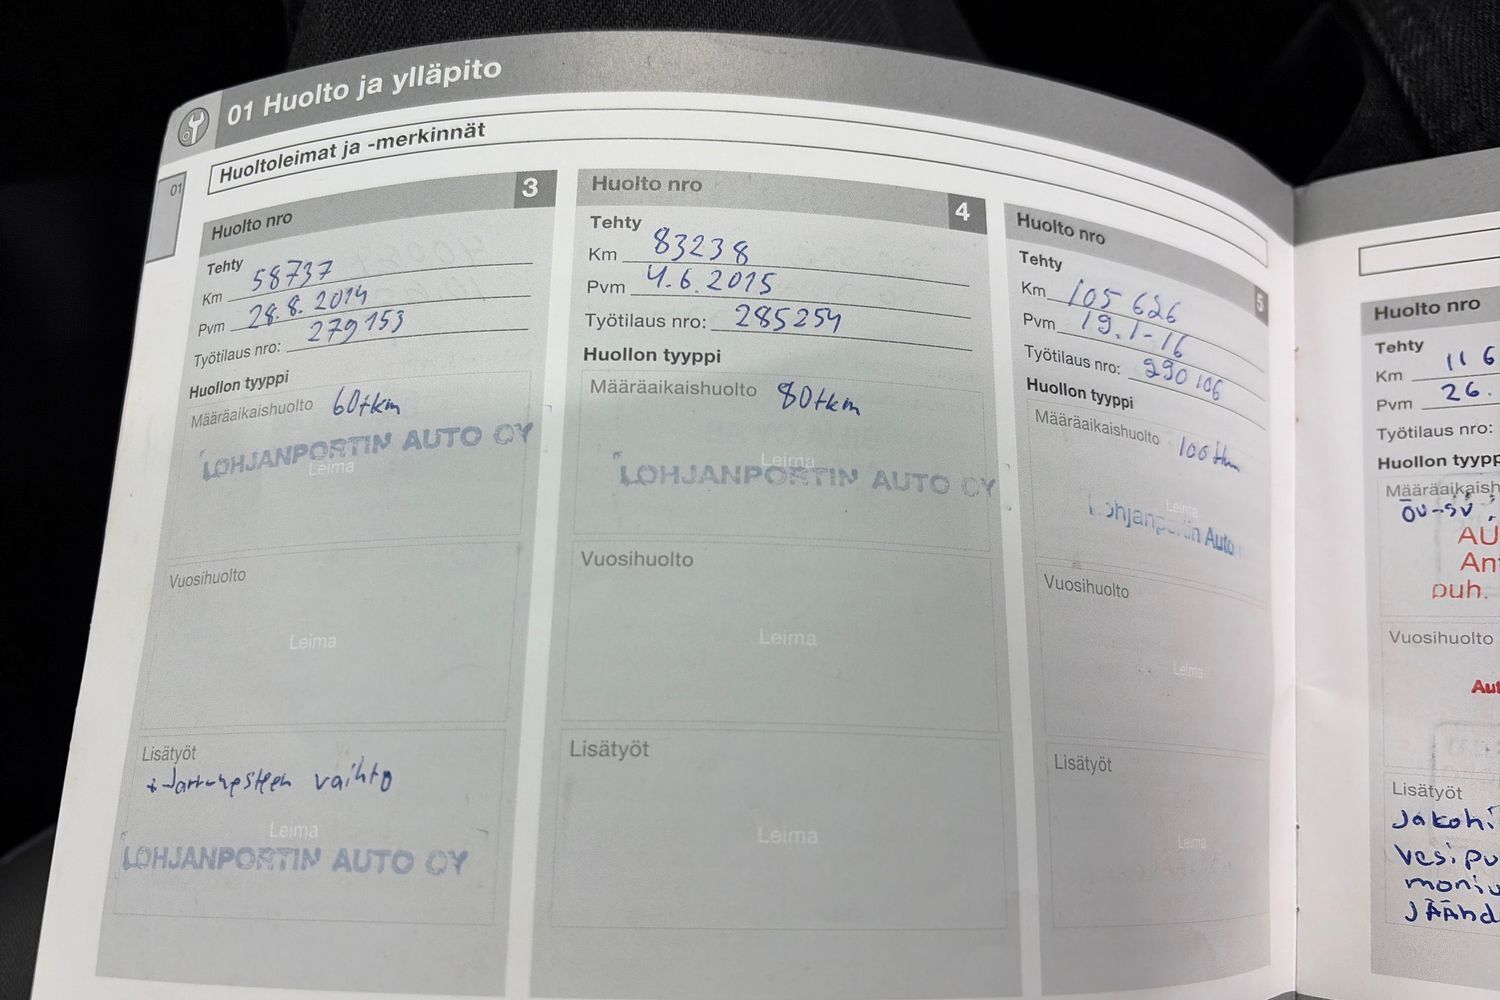 01 Huolto ja ylläpito
Huoltoleimat ja -merkinnät
01
Huolto nro 3
Tehty
Km 58737
Pvm 28.8.2014
Työtilaus nro: 279153
Huollon tyyppi
Määräaikaishuolto 60tkm
Leima
LOHJANPORTIN AUTO OY
Vuosihuolto
Leima
Lisätyöt
+Jarrunesteen vaihto
Leima
LOHJANPORTIN AUTO OY
Huolto nro 4
Tehty
Km 83238
Pvm 4.6.2015
Työtilaus nro: 285254
Huollon tyyppi
Määräaikaishuolto 80tkm
Leima
LOHJANPORTIN AUTO OY
Vuosihuolto
Leima
Lisätyöt
Leima
Huolto nro 5
Tehty
Km 105 626
Pvm 19.1-16
Työtilaus nro: 290106
Huollon tyyppi
Määräaikaishuolto 100tkm
Leima
Lohjanportin Auto
Vuosihuolto
Leima
Lisätyöt
Leima
Huolto nro
Tehty
Km 116
Pvm 26.
Työtilaus nro:
Huollon tyypp
Määräaikaish
öv-sv
AU
Ant
puh.
Vuosihuolto
Aut
Lisätyöt
Jakohi
vesipu
moniu
JÄÄhd